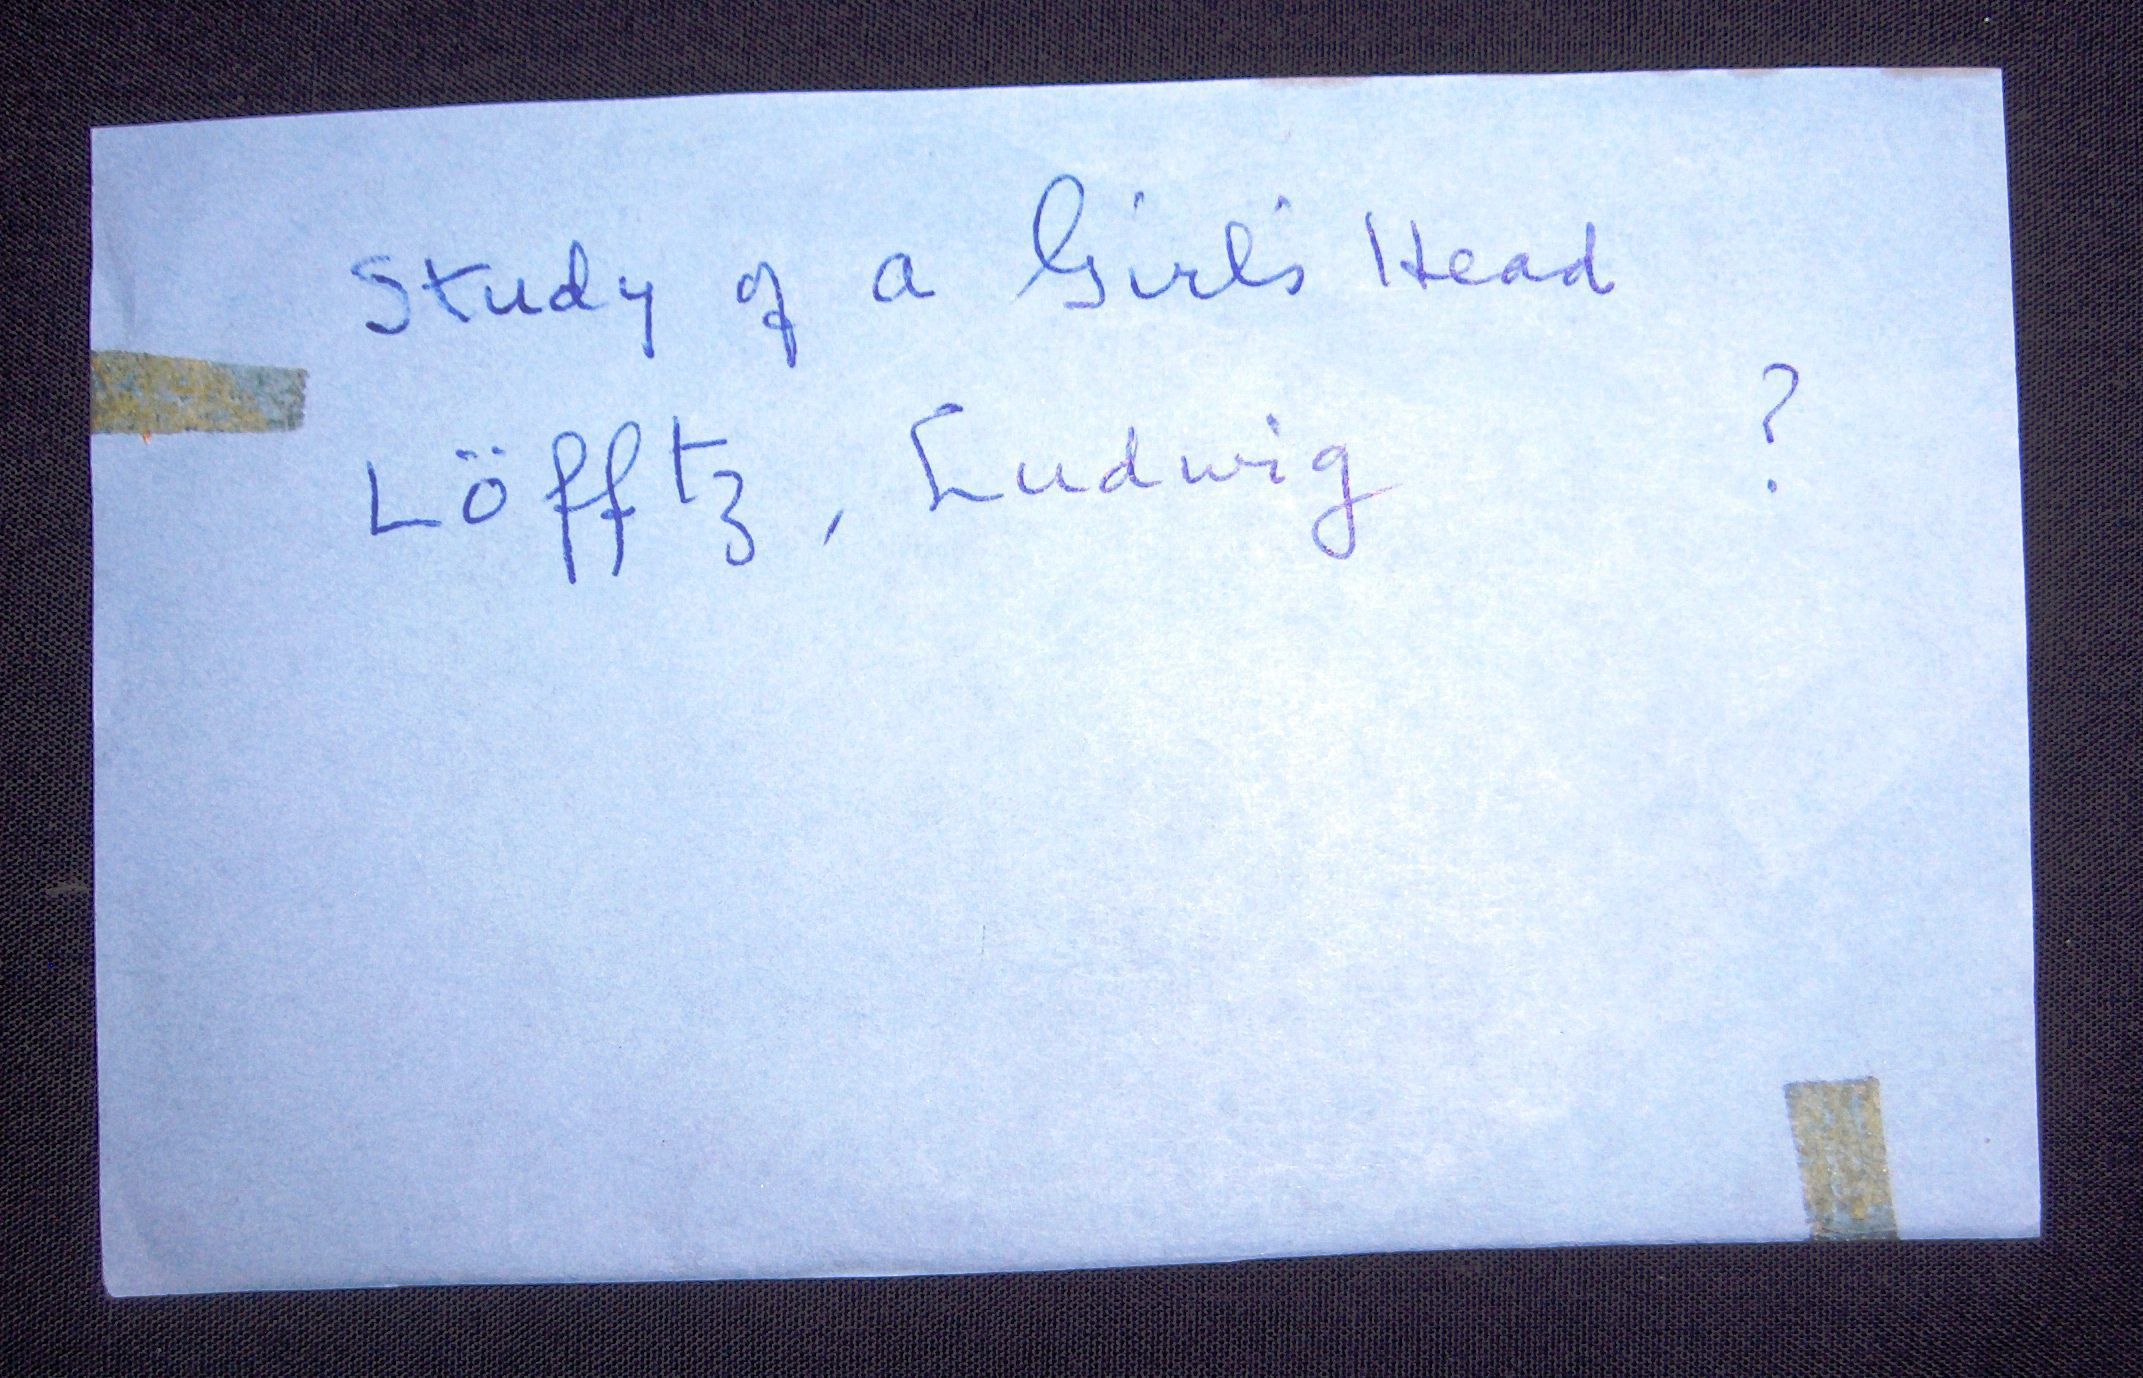 Study of a Girl's Head
Löfftz, Ludwig ?